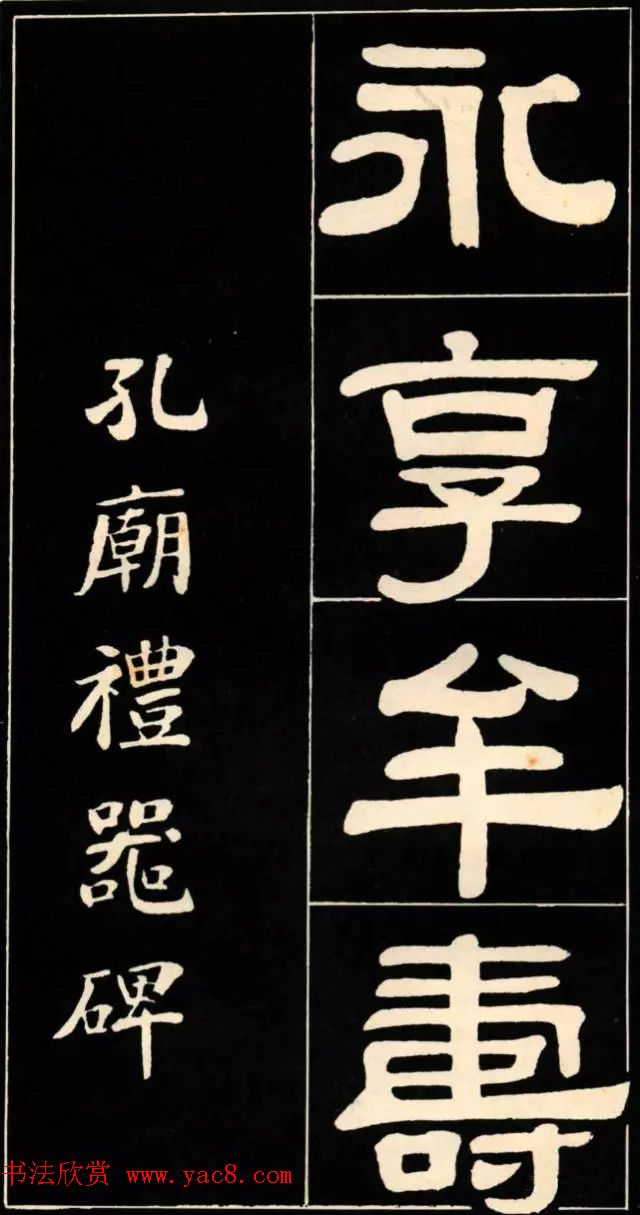 永享牟壽
孔廟禮器碑
书法欣赏 www.yac8.com